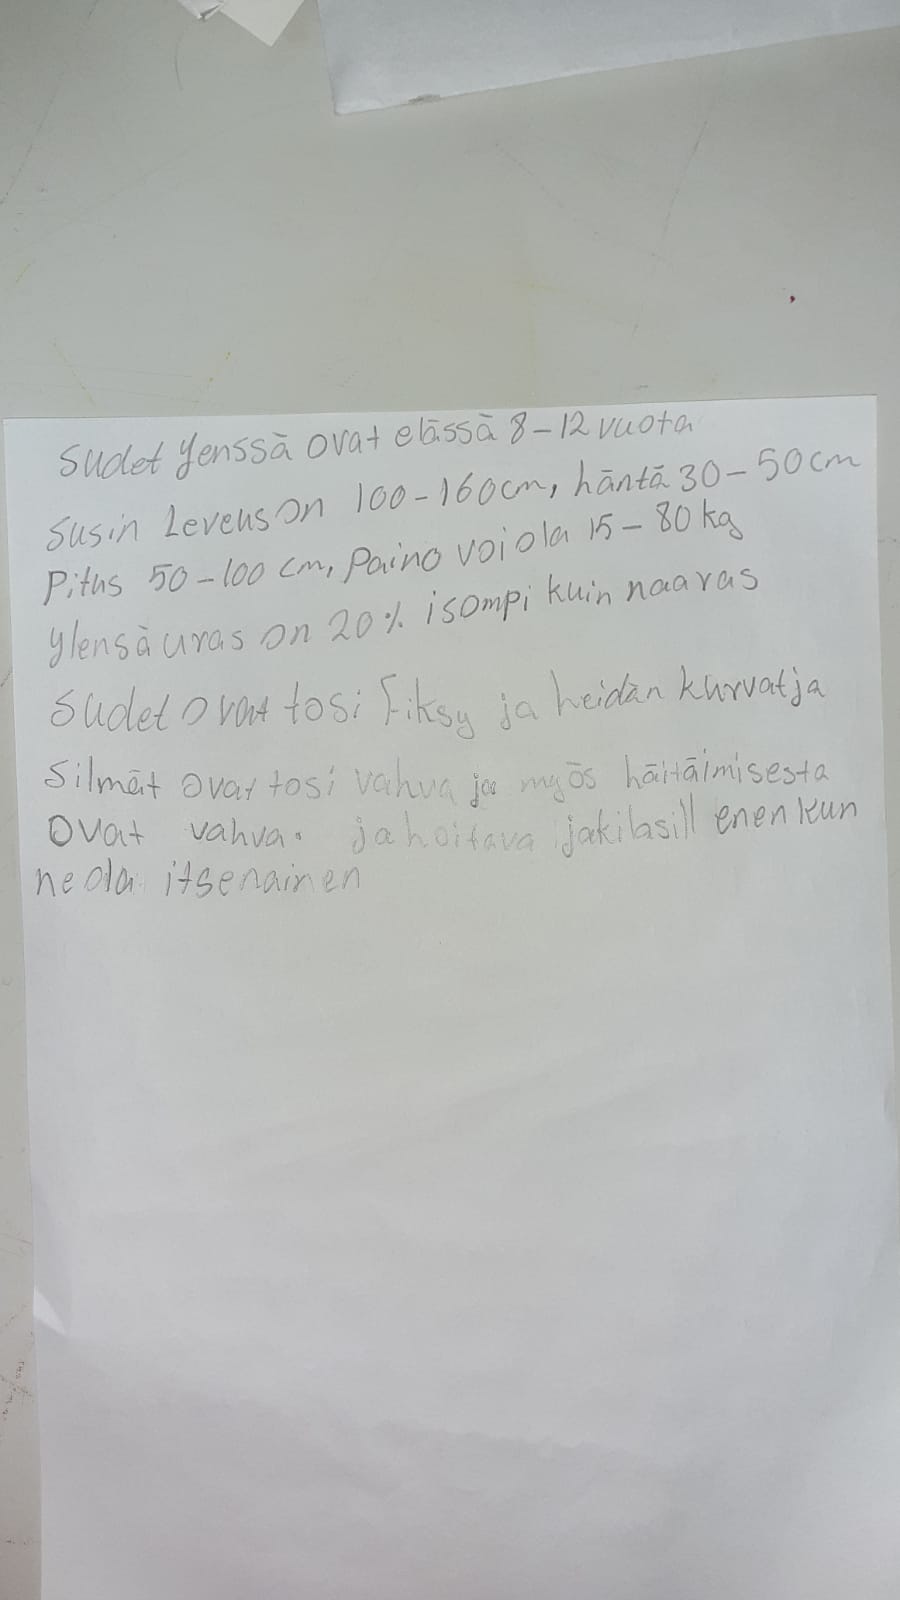 Sudet Yenssä ovat elässä 8-12 vuota
Susin Leveus on 100-160cm, häntä 30-50cm
Pitus 50-100 cm, Paino voi ola 15-80 kg
Ylensä uras on 20% isompi kuin naaras
Sudet ovat tosi Fiksy ja heidän kurvat ja
Silmät ovat tosi vahva ja myös häitäimisesta
Ovat vahva. ja hoitava jakilasill enen kun
ne ola itsenainen